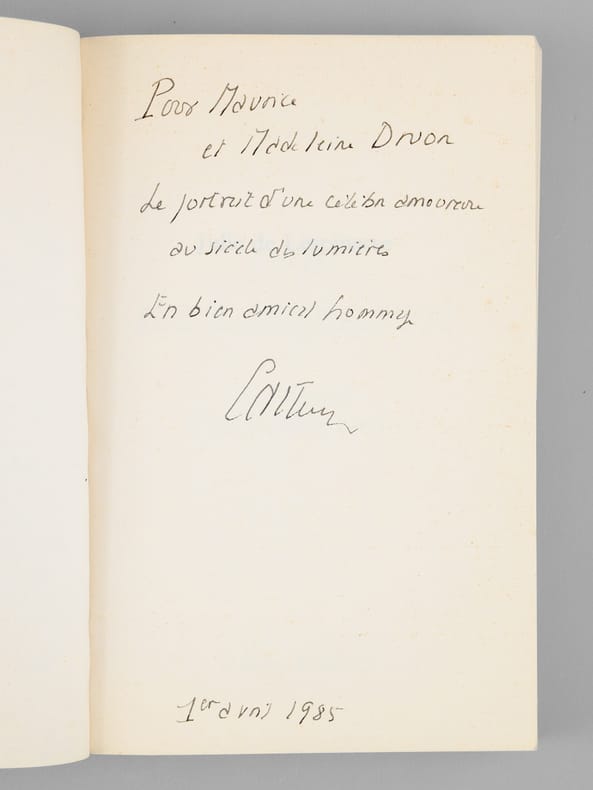 Pour Maurice
et Madeleine Druon
Le portrait d'une célèbre amoureuse
au siècle des lumières
En bien amical hommage
1er avril 1985